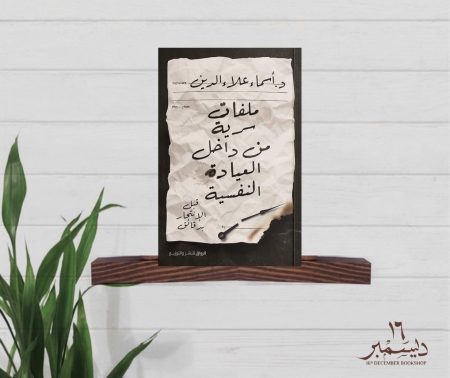 د. أسماء علاء الدين
ملفات
سرية
من داخل
العيادة
النفسية
قبل
الانتحار
بدقائق
الرواق للنشر والتوزيع
١٦
ديسمبر
16th DECEMBER BOOKSHOP